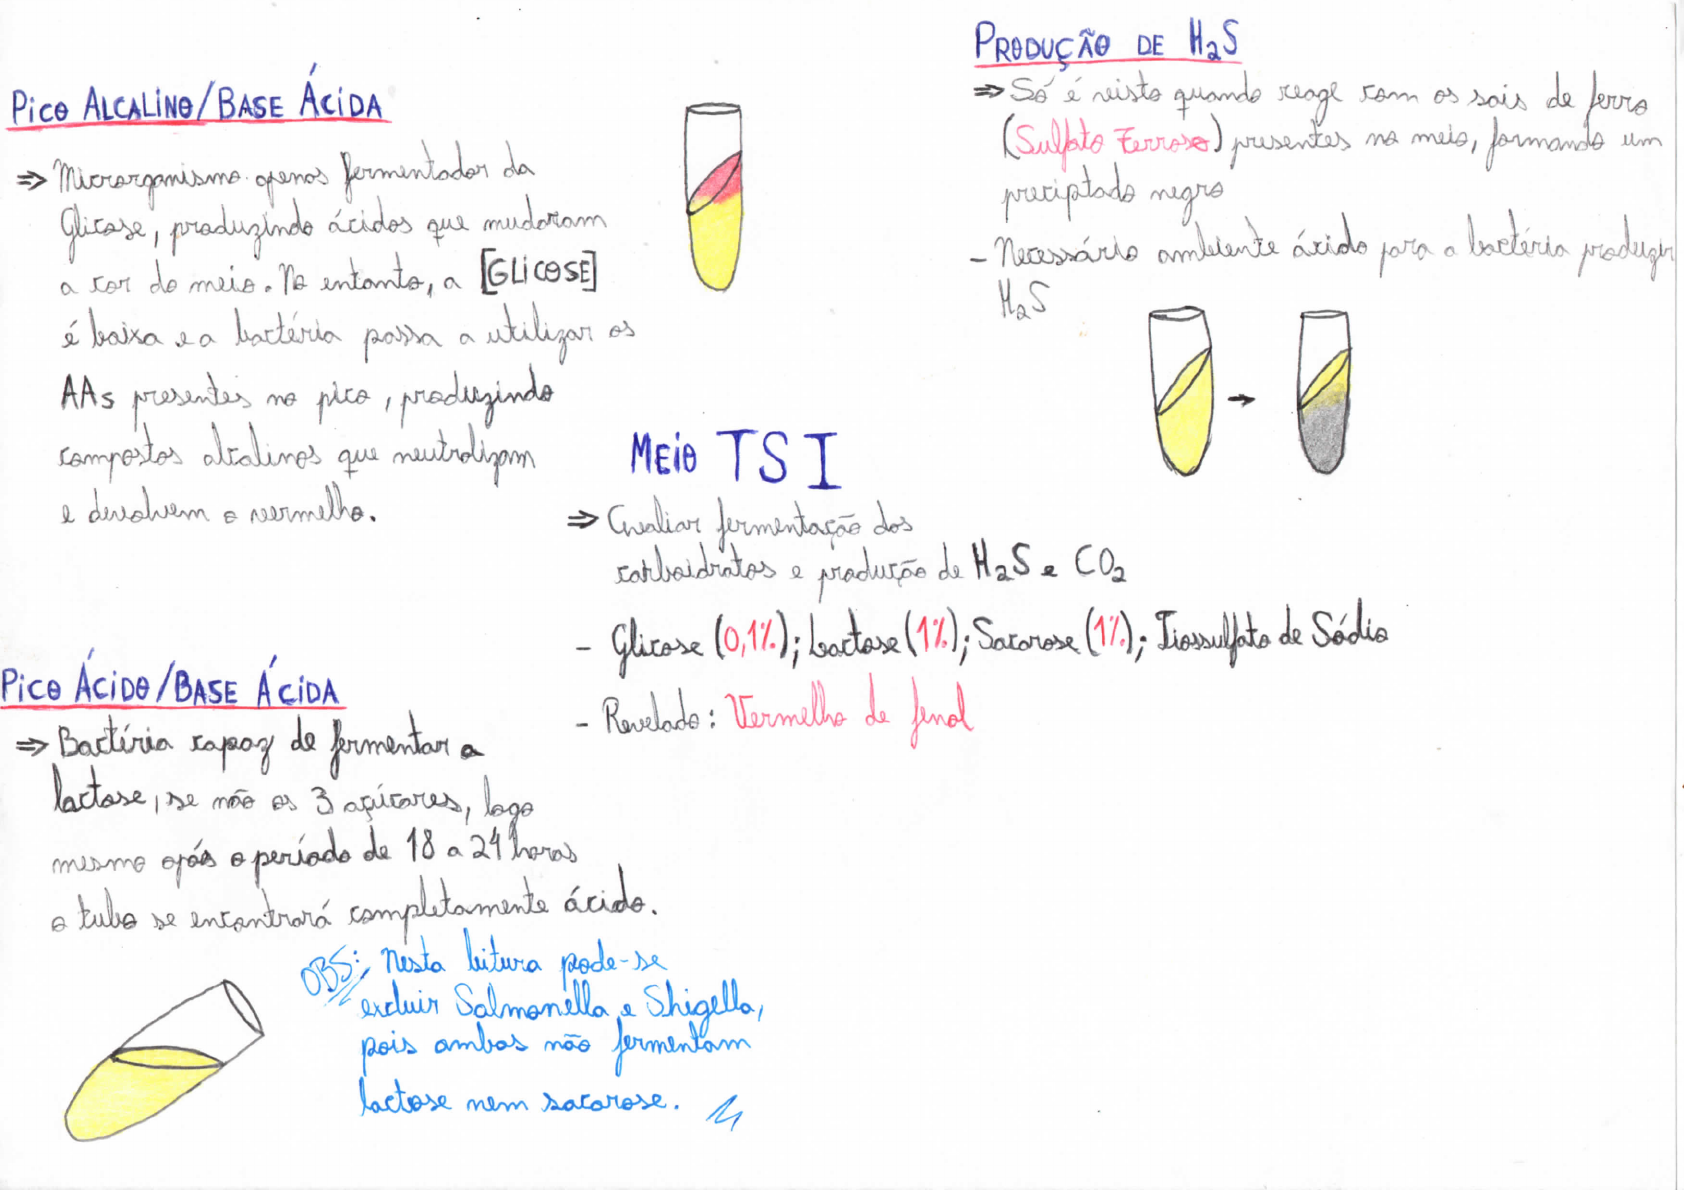 PICO ALCALINO/BASE ÁCIDA
⇒ Microrganismo apenas fermentador da
Glicose, produzindo ácidos que mudaram
a cor do meio. No entanto, a [GLICOSE]
é baixa e a bactéria passa a utilizar os
AAs presentes no pico, produzindo
compostos alcalinos que neutralizam
e devolvem o vermelho.
PICO ÁCIDO/BASE ÁCIDA
⇒ Bactéria capaz de fermentar a
lactose, se não os 3 açúcares, logo
mesmo após o período de 18 a 24 horas
o tubo se encontrará completamente ácido.
OBS: Nesta leitura pode-se
excluir Salmonella e Shigella,
pois ambas não fermentam
lactose nem sacarose.
MEIO TSI
⇒ Avaliar fermentação dos
carboidratos e produção de H₂S e CO₂
- Glicose (0,1%); Lactose (1%); Sacarose (1%); Tiossulfato de Sódio
- Revelado: Vermelho de fenol
PRODUÇÃO DE H₂S
⇒ Só é visto quando reage com os sais de ferro
(Sulfato Ferroso) presentes no meio, formando um
preciptado negro
- Necessário ambiente ácido para a bactéria produzir
H₂S
→